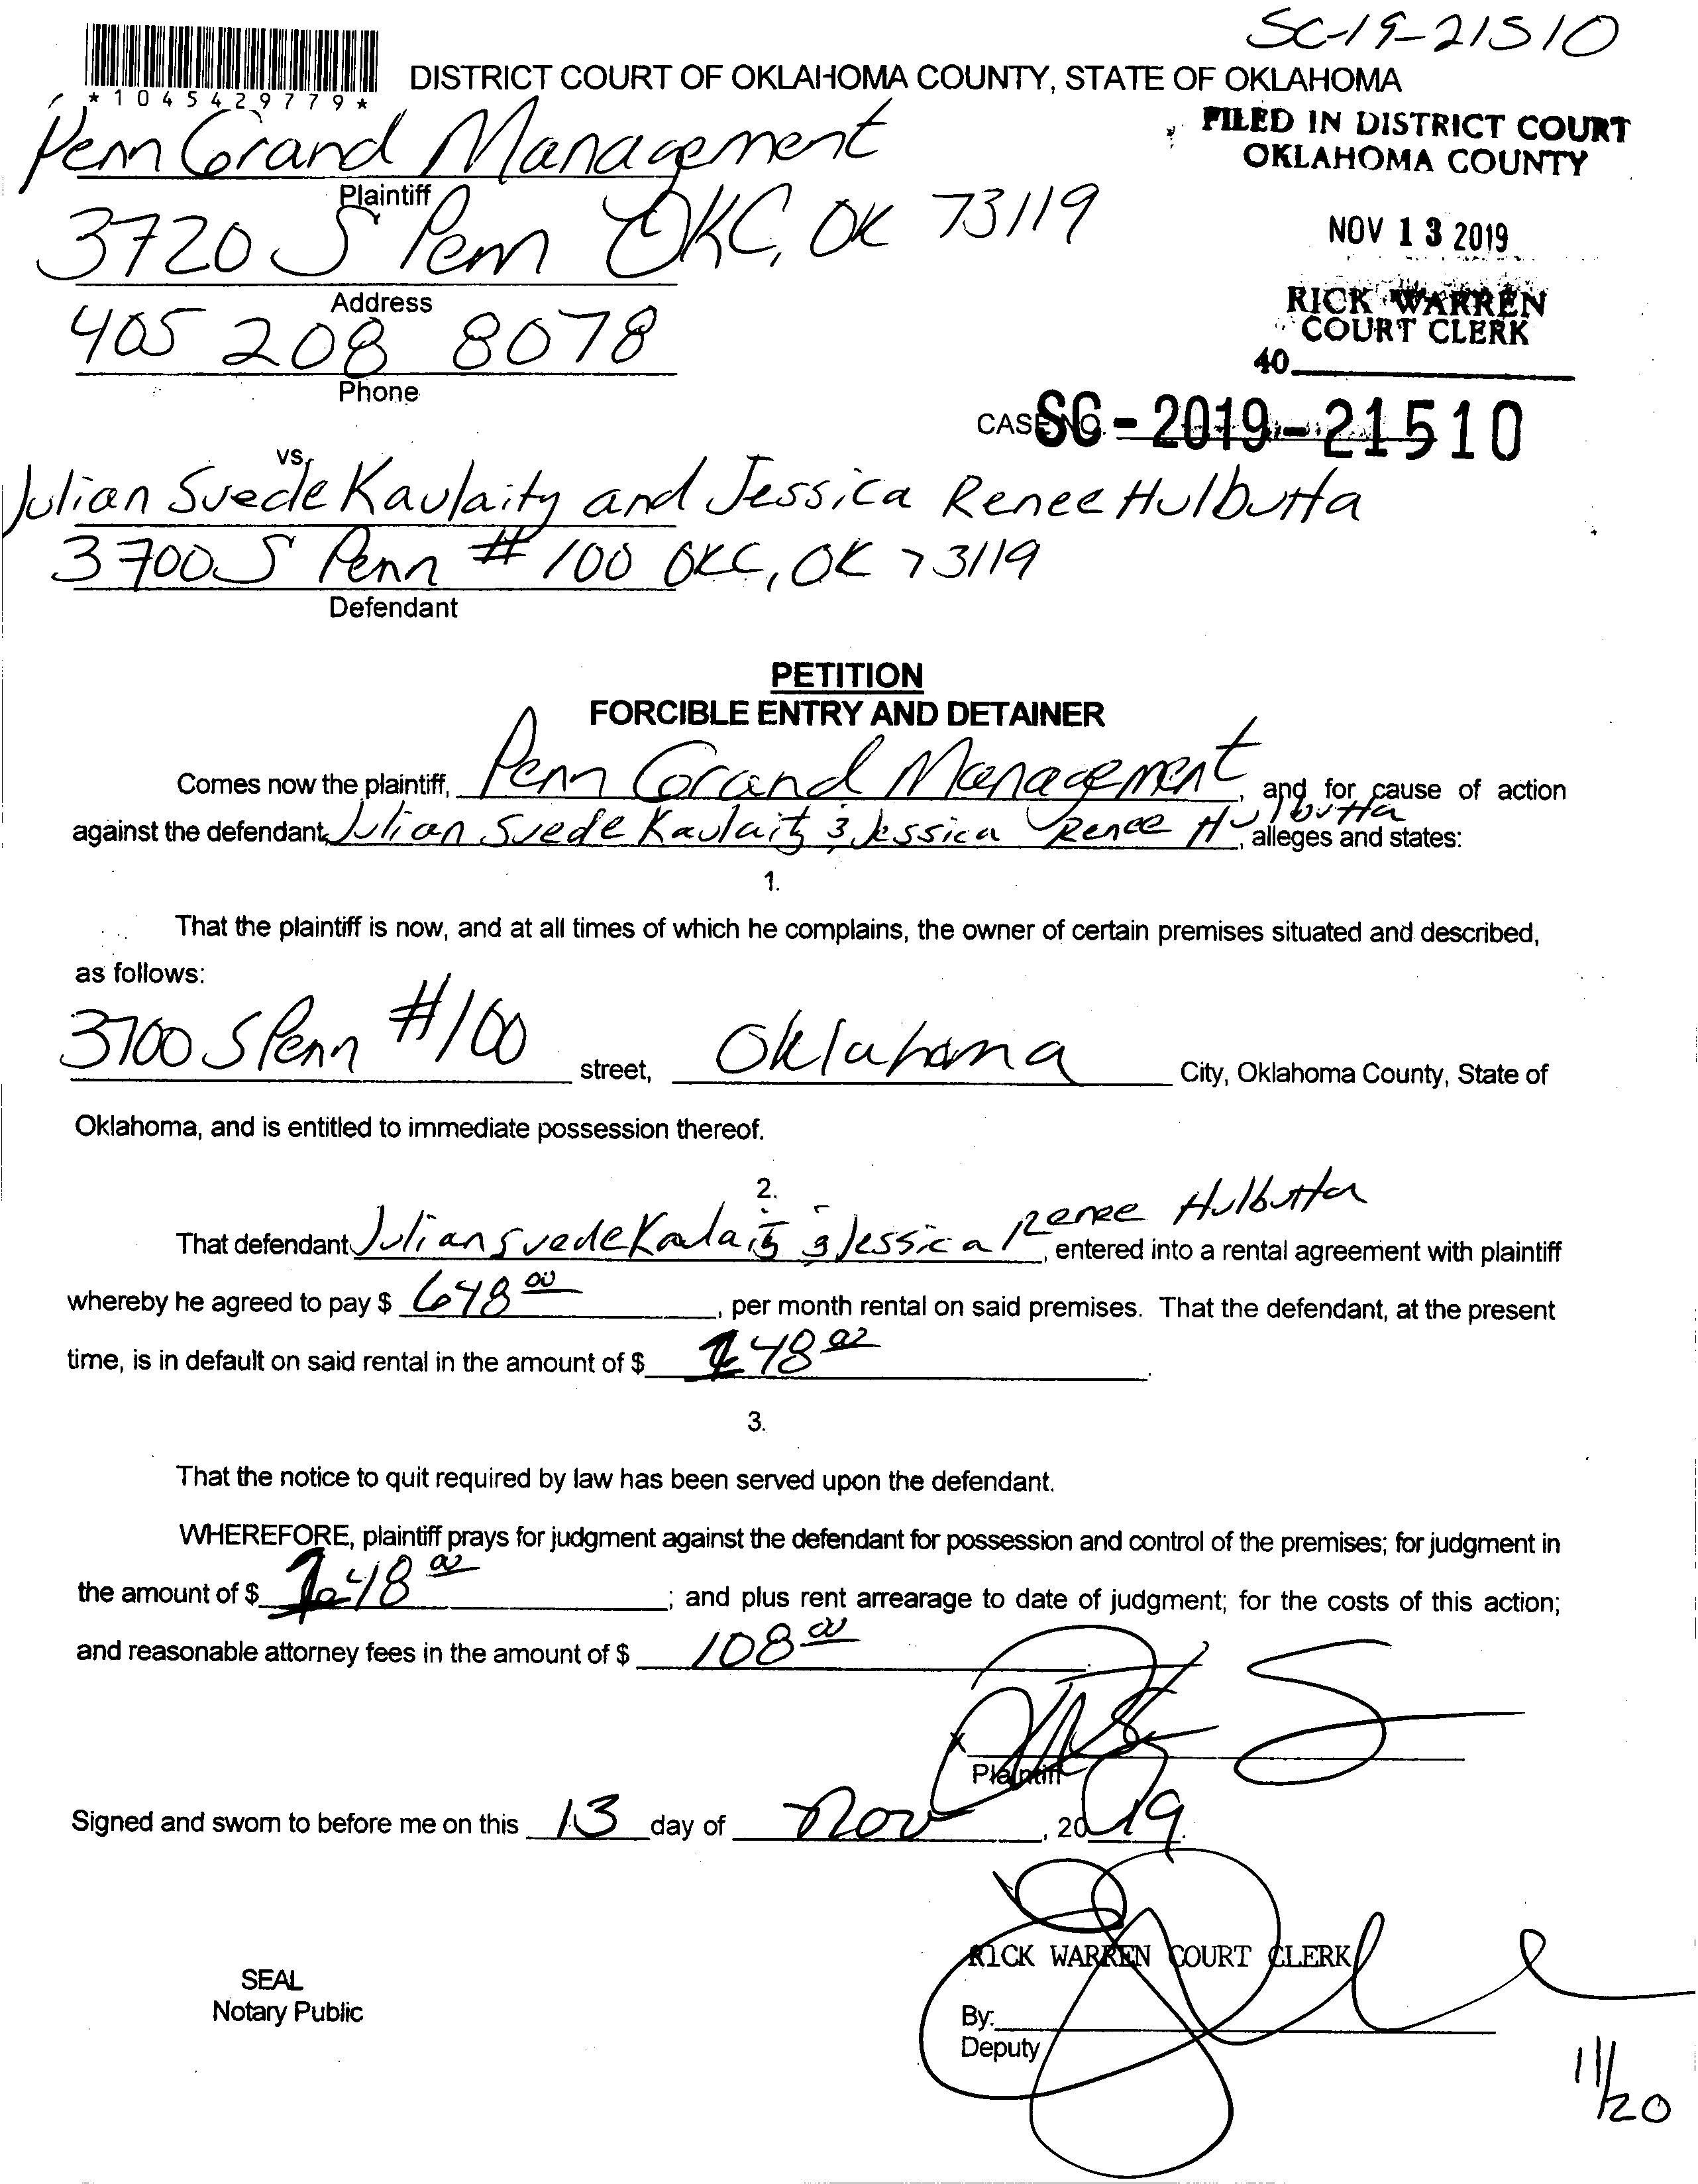 SC-19-21510
*1045429779*
DISTRICT COURT OF OKLAHOMA COUNTY, STATE OF OKLAHOMA
FILED IN DISTRICT COURT
OKLAHOMA COUNTY
Penn Grand Management
Plaintiff
NOV 13 2019
3720 S Penn OKC, OK 73119
Address
RICK WARREN
COURT CLERK
405 208 8078
Phone
40
CASE NO. SC-2019-21510
vs.
Julian Suede Kaulaity and Jessica Renee Hulbutta
3700 S Penn #100 OKC, OK 73119
Defendant
PETITION
FORCIBLE ENTRY AND DETAINER
Comes now the plaintiff, Penn Grand Management, and for cause of action
against the defendant, Julian Suede Kaulaity & Jessica Renee Hulbutta, alleges and states:
1.
That the plaintiff is now, and at all times of which he complains, the owner of certain premises situated and described,
as follows:
3700 S Penn #100 street, Oklahoma City, Oklahoma County, State of
Oklahoma, and is entitled to immediate possession thereof.
2.
That defendant Julian Suede Kaulaity & Jessica Renee Hulbutta, entered into a rental agreement with plaintiff
whereby he agreed to pay $ 648 00, per month rental on said premises. That the defendant, at the present
time, is in default on said rental in the amount of $ .
3.
That the notice to quit required by law has been served upon the defendant.
WHEREFORE, plaintiff prays for judgment against the defendant for possession and control of the premises; for judgment in
the amount of $ ; and plus rent arrearage to date of judgment; for the costs of this action;
and reasonable attorney fees in the amount of $ 108 00.
X
Plaintiff
Signed and sworn to before me on this 13 day of Nov, 2019.
RICK WARREN COURT CLERK
SEAL
Notary Public
By:
Deputy
11/20